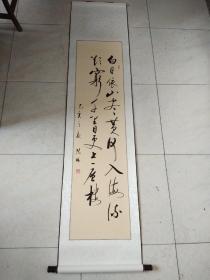 白日依山尽黄河入海流
欲窮千里目更上一层楼